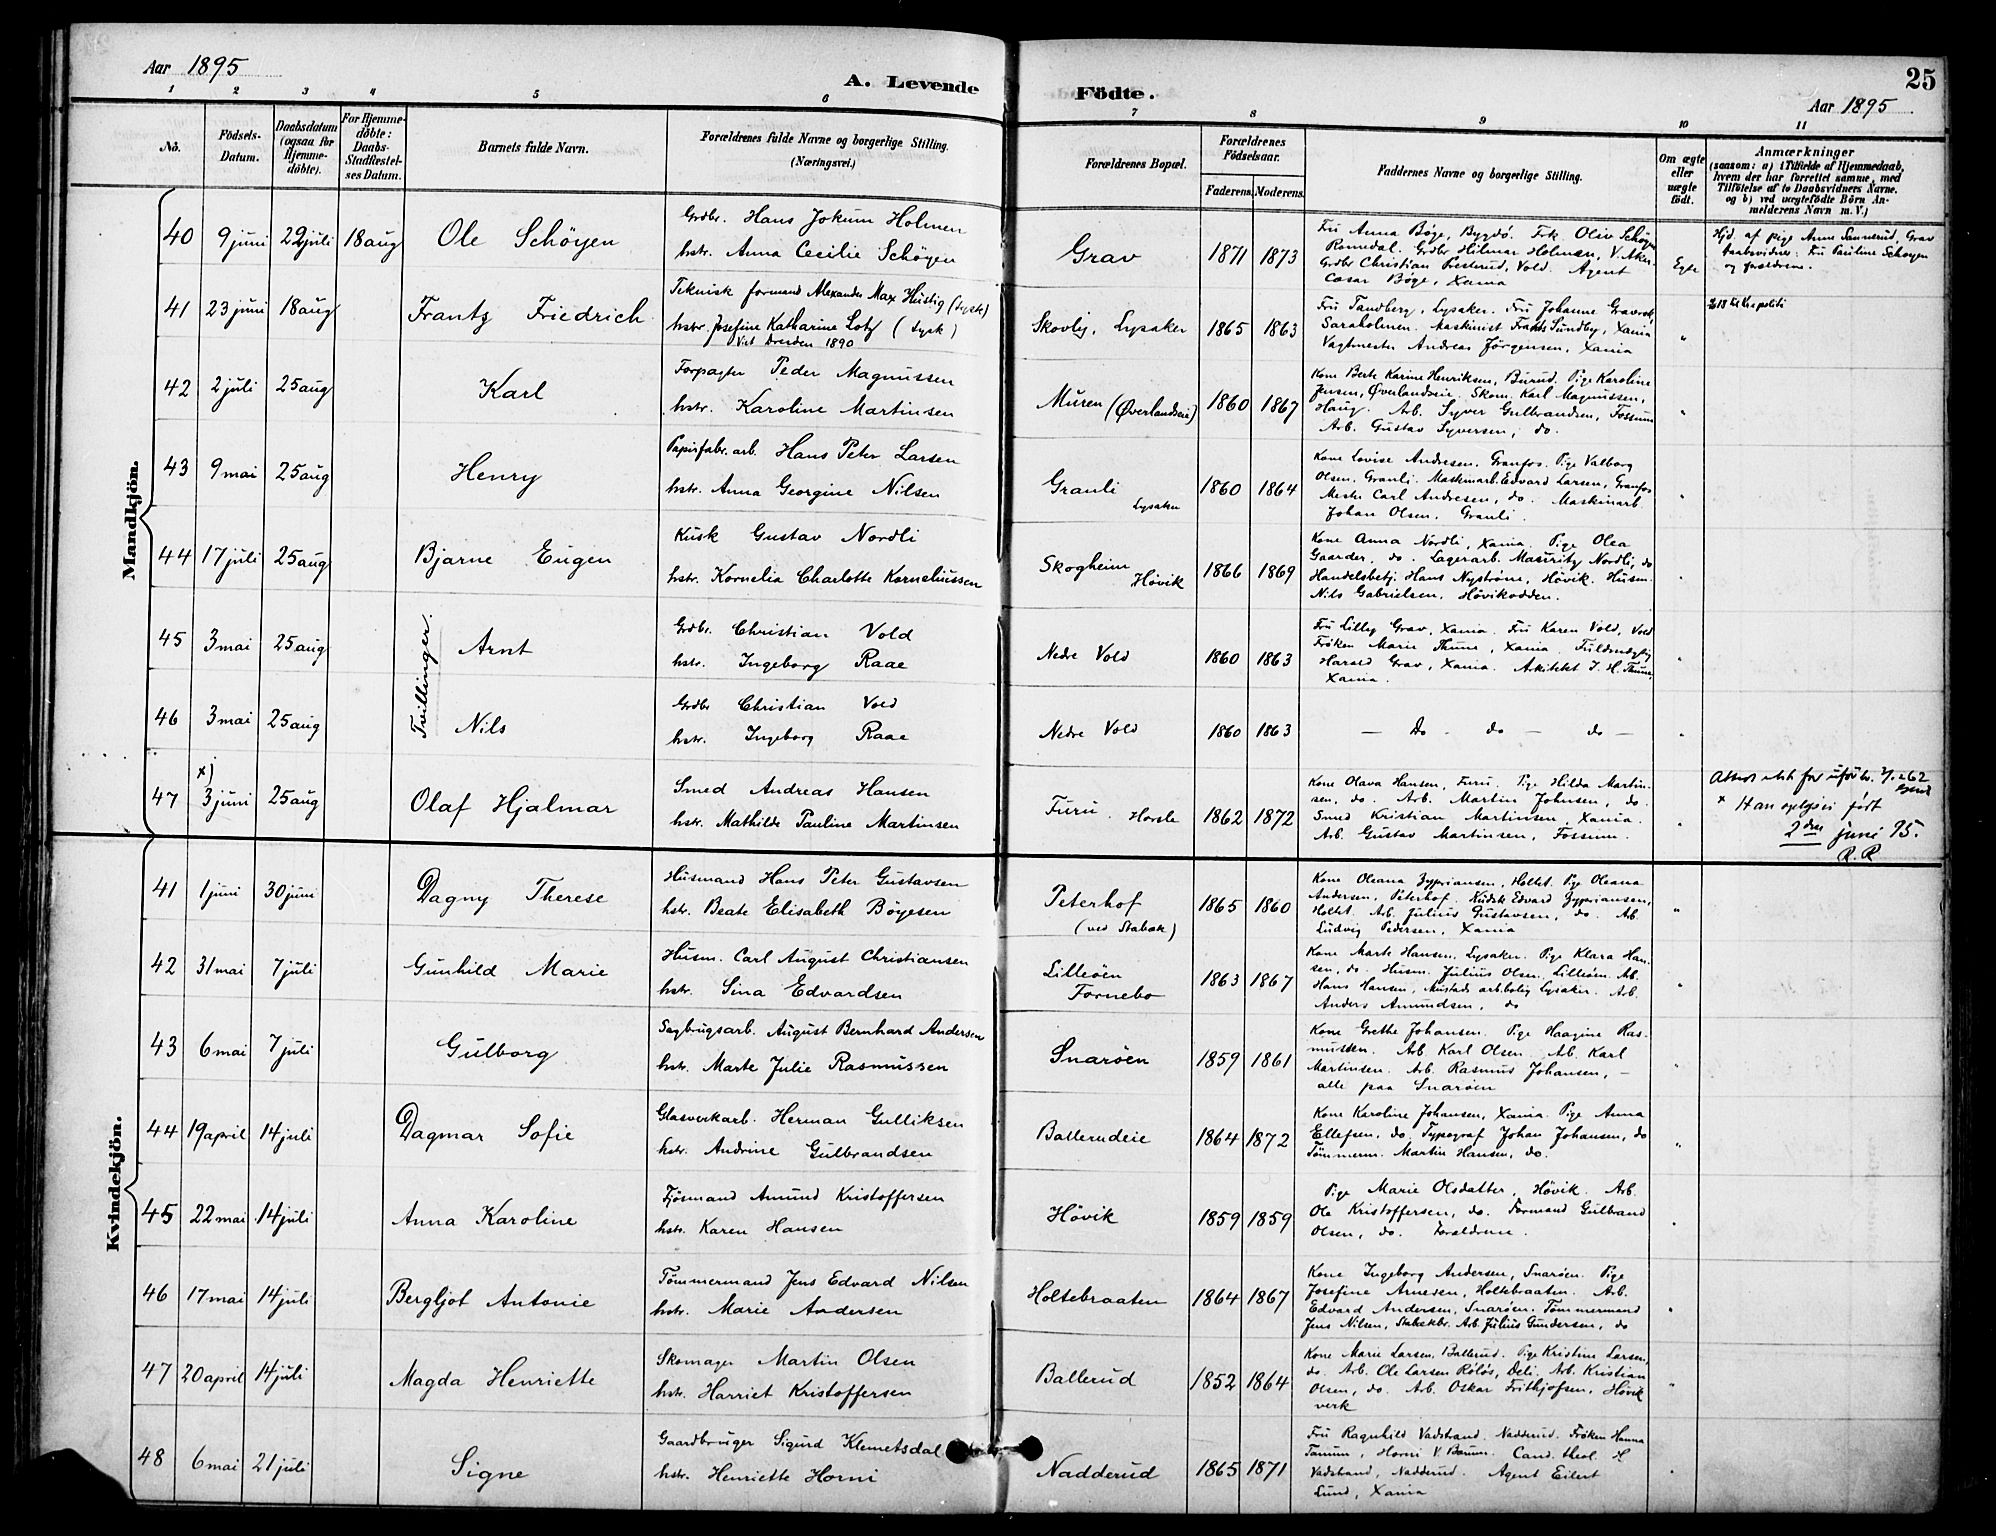 Aar 1895
A. Levende Födte.
25
Aar 1895
1 2 3 4 5 6 7 8 9 10 11
No.
Födsels-Datum.
Daabsdatum (ogsaa for Hjemme-døbte).
For Hjemme-døbte: Daabs-Stadfæstel-ses Datum.
Barnets fulde Navn.
Forældrenes fulde Navne og borgerlige Stilling. (Næringsvei.)
Forældrenes Bopæl.
Forældrenes Födselsaar.
Faderens. Moderens.
Faddernes Navne og borgerlige Stilling.
Om ægte eller uægte födt.
Anmærkninger
(saasom: a) i Tilfælde af Hjemmedaab,
hvem der har forrettet samme, med
Tilföielse af to Daabsvidners Navne.
og b) ved uægtefödte Börn An-
melderens Navn m. V.)
Mandkjön.
40 9 juni 22 juli 18 aug Ole Schöyen
Grdbr. Hans Jokum Holmen
hstr. Anna Cecilie Schöyen
Grav 1871 1873
Fru Anna Böge, Bygdö. Frk. Oliv Schöyen
Romedal. Grdbr Hilmar Holmen, V. Aker.
Grdbr Christian Presterud, Vold. Agent
Cæsar Böge, Xania
Egte
Hjd. af pige Anne Sannerud, Grav
Daabsvidner: Fru Pauline Schøyen
og forældrene.
41 23 juni 18 aug Frantz Friedrich
Teknisk formand Alexander Max Hustig (tysk)
hstr. Josefine Katharine Lotz (tysk)
Viet Dresden 1890
Skovly, Lysaker 1865 1863
Fru Tandberg, Lysaker. Fru Johanne Gravrok,
Saraholmen. Maskinist Frants Sundby, Xania
Vagtmester Andreas Jörgensen, Xania
"
42 2 juli 25 aug Karl
Forpagter Peder Magnussen
hstr. Karoline Martinsen
Muren (Øverlandseie) 1860 1867
Kone Berte Karine Henriksen, Burud. Pige Karoline
Jensen, Øverlandseie. Skom. Karl Magnussen,
Haug. Arb. Syver Gulbrandsen, Fossum
Arb. Gustav Syversen, do.
"
43 9 mai 25 aug Henry
Papirfabr. arb. Hans Peter Larsen
hstr. Anna Georgine Nilsen
Granli
Lysaker 1860 1864
Kone Lovise Andresen, Granfos. Pige Valborg
Olsen, Granli. Maskinarb. Edvard Larsen, Granfos
Mester Carl Andresen, do. Maskinarb.
Johan Olsen, Granli.
"
44 17 juli 25 aug Bjarne Eugen
Kusk Gustav Nordli
hstr. Kornelia Charlotte Korneliussen
Skogheim
Høvik 1866 1869
Kone Anna Nordli, Xania. Pige Olea
Gaarder, do. Lagerarb. Mauritz Nordli, do
Handelsbetj. Hans Nyström, Høvik. Husm.
Nils Gabrielsen, Høvikodden.
"
Tvillinger.
45 3 mai 25 aug Arnt
Grdbr. Christian Vold
hstr. Ingeborg Raae
Nedre Vold 1860 1863
Fru Lilley Grav, Xania. Fru Karen Vold, Vold
Fröken Marie Thune, Xania. Fuldmægtig
Harald Grav, Xania. Arkitekt J. H. Thune,
Xania.
"
46 3 mai 25 aug Nils
Grdbr Christian Vold
hstr. Ingeborg Raae
Nedre Vold 1860 1863
— Do - do — do —
"
x)
47 3 juni 25 aug Olaf Hjalmar
Smed Andreas Hansen
hstr. Mathilde Pauline Martinsen
Furu. Horsle 1862 1872
Kone Olava Hansen, Furu. Pige Hilda Martin-
sen, do. Arb. Martin Johnsen, do.
Smed Kristian Martinsen, Xania.
Arb. Gustav Martinsen, Fossum.
"
x Han opgives født
2den juni 95.
R. R
Kvindekjön.
41 1 juni 30 juni Dagny Therese
Husmand Hans Peter Gustavsen
hstr. Beate Elisabeth Böyesen
Peterhof
(ved Stabæk) 1865 1860
Kone Oleana Zypriansen, Holtet. Pige Oleana
Andersen, Peterhof. Kudsk Edvard Zypriansen,
Holtet. Arb. Julius Gustavsen, do. Arb.
Ludvig Pedersen, Xania
"
42 31 mai 7 juli Gunhild Marie
Husm. Carl August Christiansen
hstr. Sina Edvardsen
Lilleöen
Fornebo 1863 1867
Kone Marte Hansen, Lysaker. Pige Klara Han-
sen, do. Husm. Julius Olsen, Lilleöen. Arb.
Hans Hansen, Mustads arb.bolig Lysaker. Arb.
Anders Amundsen, do
"
43 6 mai 7 juli Gulborg
Sagbrugsarb. August Bernhard Andersen
hstr. Marte Julie Rasmussen
Snaröen 1859 1861
Kone Grethe Johansen. Pige Haagine Ras-
mussen. Arb. Karl Olsen. Arb. Karl
Martinsen. Arb. Rasmus Johansen, —
alle paa Snaröen
"
44 19 april 14 juli Dagmar Sofie
Glasverkarb. Herman Gulliksen
hstr. Andrine Gulbrandsen
Ballerudeie 1864 1872
Kone Karoline Johansen, Xania. Pige Anna
Ellefsen, do. Typograf Johan Johansen, do
Tömmerm. Martin Hansen, do.
"
45 22 mai 14 juli Anna Karoline
Fjösmand Amund Kristoffersen
hstr. Karen Hansen
Hövik 1859 1859
Pige Marie Olsdatter, Hövik. Arb.
Ole Kristoffersen, do. Formand Gulbrand
Olsen, do. Forældrene.
"
46 17 mai 14 juli Bergljot Antonie
Tömmermand Jens Edvard Nilsen
hstr. Marie Andersen
Holtebraaten 1864 1867
Kone Ingeborg Andersen, Snaröen. Pige
Josefine Arnesen, Holtebraaten. Arb.
Edvard Andersen, Snaröen. Tömmermand
Jens Nilsen, Stabækbr. Arb. Julius Gundersen, do
"
47 20 april 14 juli Magda Henriette
Skomager Martin Olsen
hstr. Harriet Kristoffersen
Ballerud 1852 1864
Kone Marie Larsen, Ballerud. Pige Kristine Larsen,
do. Arb. Ole Larsen Röløs, Deli. Arb. Kristian
Olsen, do. Arb. Oskar Frithjofsen, Høvik
verk
"
48 6 mai 21 juli Signe
Gaardbruger Sigurd Klemetsdal
hstr. Henriette Horni
Nadderud 1865 1871
Fru Ragnhild Vadstrand, Nadderud. Fröken Hanna
Tanum, Horni V. Bærum. Cand. theol. H
Vadstrand, Nadderud. Agent Eilert
Lund, Xania
"